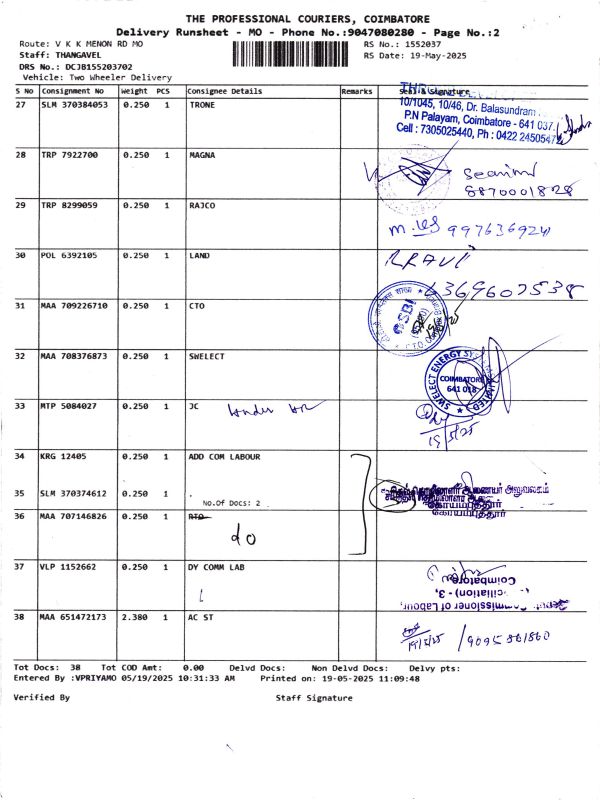 THE PROFESSIONAL COURIERS, COIMBATORE
Delivery Runsheet - MO - Phone No.:9047080280 - Page No.:2
Route: V K K MENON RD MO
RS No.: 1552037
Staff: THANGAVEL
RS Date: 19-May-2025
DRS No.: DCJB155203702
Vehicle: Two Wheeler Delivery
S No Consignment No Weight PCS Consignee Details Remarks Seal & Signature
27 SLM 370384053 0.250 1 TRONE
10/1045, 10/46, Dr. Balasundram
P.N Palayam, Coimbatore - 641 037.
Cell : 7305025440, Ph : 0422 2450547
28 TRP 7922700 0.250 1 MAGNA
8870001828
29 TRP 8299059 0.250 1 RAJCO
9976369241
30 POL 6392105 0.250 1 LAND
RRAVI
9607538
31 MAA 709226710 0.250 1 CTO
SBI
32 MAA 708376873 0.250 1 SWELECT
SWELECT ENERGY SYSTEMS LIMITED
COIMBATORE
641 018
33 MTP 5084027 0.250 1 JC
19/5/25
34 KRG 12405 0.250 1 ADD COM LABOUR
35 SLM 370374612 0.250 1 .
No.Of Docs: 2
ஆணையர் அலுவலகம்
கோயம்புத்தூர்
36 MAA 707146826 0.250 1 RTO
do
37 VLP 1152662 0.250 1 DY COMM LAB
Commissioner of Labour,
(Conciliation) - 3,
Coimbatore
38 MAA 651472173 2.380 1 AC ST
19/5/25
Tot Docs: 38 Tot COD Amt: 0.00 Delvd Docs: Non Delvd Docs: Delvy pts:
Entered By :VPRIYAMO 05/19/2025 10:31:33 AM Printed on: 19-05-2025 11:09:48
Verified By Staff Signature